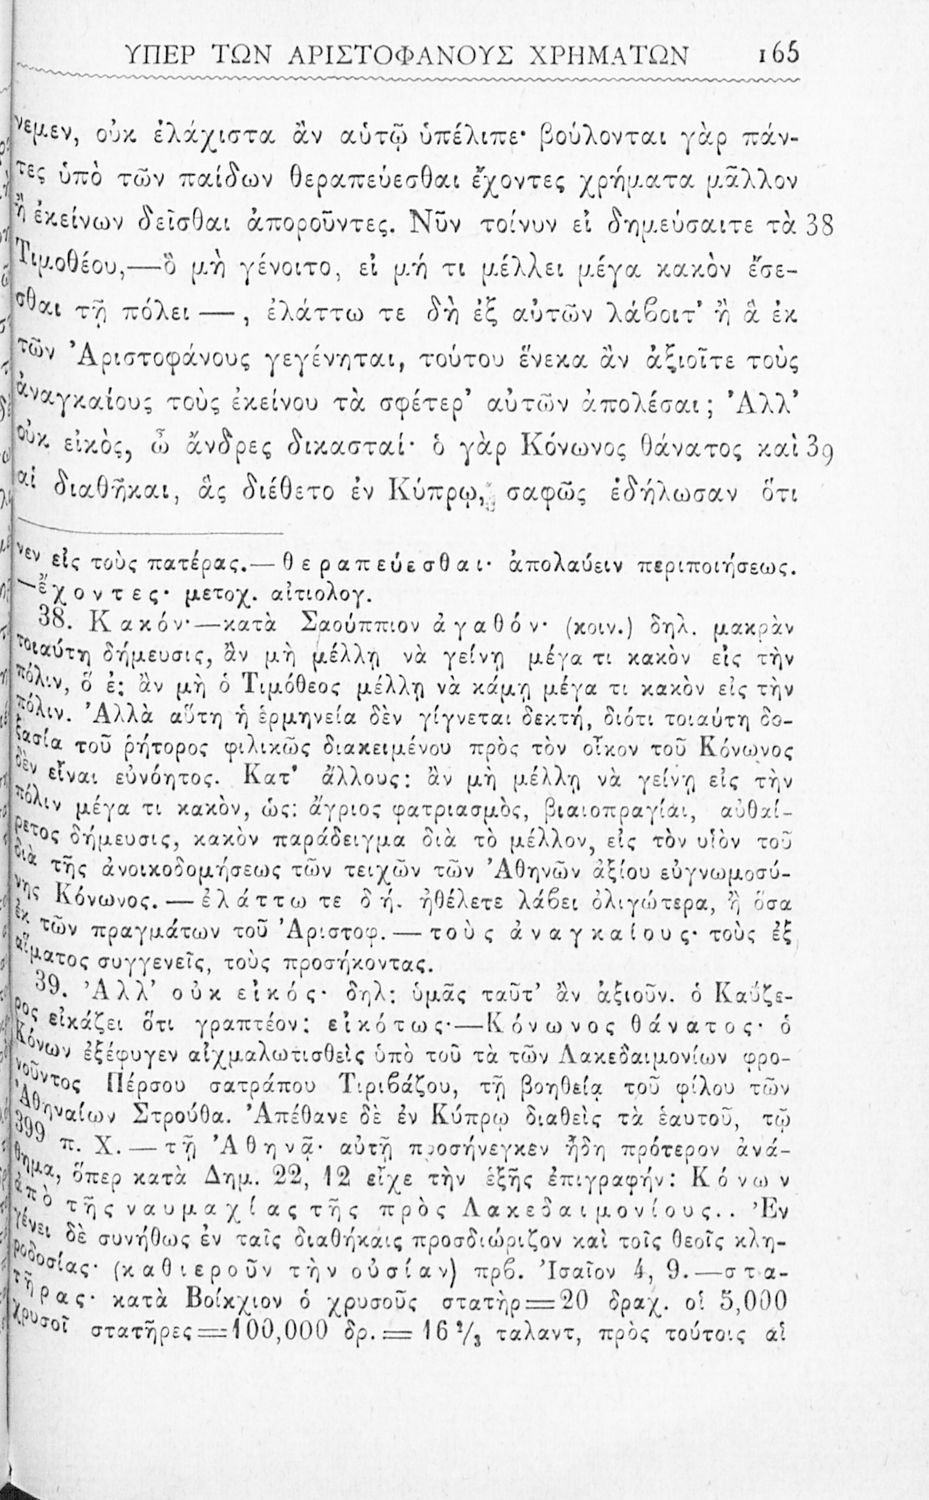 ΥΠΕΡ ΤΩΝ ΑΡΙΣΤΟΦΑΝΟΥΣ ΧΡΗΜΑΤΩΝ 165
νεμεν, οὐκ ἐλάχιστα ἂν αὑτῷ ὑπέλιπε· βούλονται γὰρ πάν-
τες ὑπὸ τῶν παίδων θεραπεύεσθαι ἔχοντες χρήματα μᾶλλον
ἢ ἐκείνων δεῖσθαι ἀποροῦντες. Νῦν τοίνυν εἰ δημεύσαιτε τὰ 38
Τιμοθέου,—ὃ μὴ γένοιτο, εἰ μή τι μέλλει μέγα κακὸν ἔσε-
σθαι τῇ πόλει — , ἐλάττω τε δὴ ἐξ αὐτῶν λάβοιτ' ἢ ἃ ἐκ
τῶν Ἀριστοφάνους γεγένηται, τούτου ἕνεκα ἂν ἀξιοῖτε τοὺς
ἀναγκαίους τοὺς ἐκείνου τὰ σφέτερ' αὐτῶν ἀπολέσαι; Ἀλλ'
οὐκ εἰκὸς, ὦ ἄνδρες δικασταί· ὁ γὰρ Κόνωνος θάνατος καὶ 39
αἱ διαθῆκαι, ἃς διέθετο ἐν Κύπρῳ, σαφῶς ἐδήλωσαν ὅτι
νεν εἰς τοὺς πατέρας.— θεραπεύεσθαι· ἀπολαύειν περιποιήσεως.
—ἔχοντες· μετοχ. αἰτιολογ.
38. Κακόν·—κατὰ Σαούππιον ἀγαθόν· (κοιν.) δηλ. μακρὰν
τοιαύτη δήμευσις, ἂν μὴ μέλλῃ νὰ γείνῃ μέγα τι κακὸν εἰς τὴν
πόλιν, ὅ ἐ; ἂν μὴ ὁ Τιμόθεος μέλλῃ νὰ κάμῃ μέγα τι κακὸν εἰς τὴν
πόλιν. Ἀλλὰ αὕτη ἡ ἑρμηνεία δὲν γίγνεται δεκτή, διότι τοιαύτη δο-
ξασία τοῦ ῥήτορος φιλικῶς διακειμένου πρὸς τὸν οἶκον τοῦ Κόνωνος
δὲν εἶναι εὐνόητος. Κατ' ἄλλους: ἂν μὴ μέλλῃ νὰ γείνῃ εἰς τὴν
πόλιν μέγα τι κακὸν, ὡς: ἄγριος φατριασμὸς, βιαιοπραγίαι, αὐθαί-
ρετος δήμευσις, κακὸν παράδειγμα διὰ τὸ μέλλον, εἰς τὸν υἱὸν τοῦ
διὰ τῆς ἀνοικοδομήσεως τῶν τειχῶν τῶν Ἀθηνῶν ἀξίου εὐγνωμοσύ-
νης Κόνωνος. — ἐλάττω τε δή. ἠθέλετε λάβει ὀλιγώτερα, ἢ ὅσα
ἐκ τῶν πραγμάτων τοῦ Ἀριστοφ. — τοὺς ἀναγκαίους· τοὺς ἐξ
αἵματος συγγενεῖς, τοὺς προσήκοντας.
39. Ἀλλ' οὐκ εἰκός· δηλ: ὑμᾶς ταῦτ' ἂν ἀξιοῦν. ὁ Καύζε-
ρος εἰκάζει ὅτι γραπτέον: εἰκότως·—Κόνωνος θάνατος· ὁ
Κόνων ἐξέφυγεν αἰχμαλωτισθεὶς ὑπὸ τοῦ τὰ τῶν Λακεδαιμονίων φρο-
νοῦντος Πέρσου σατράπου Τιριβάζου, τῇ βοηθείᾳ τοῦ φίλου τῶν
Ἀθηναίων Στρούθα. Ἀπέθανε δὲ ἐν Κύπρῳ διαθεὶς τὰ ἑαυτοῦ, τῷ
399 π. Χ. — τῇ Ἀθηνᾷ· αὐτῇ προσήνεγκεν ἤδη πρότερον ἀνά-
θημα, ὅπερ κατὰ Δημ. 22, 12 εἶχε τὴν ἑξῆς ἐπιγραφήν: Κόνων
ἀπὸ τῆς ναυμαχίας τῆς πρὸς Λακεδαιμονίους.. Ἐν
γένει δὲ συνήθως ἐν ταῖς διαθήκαις προσδιώριζον καὶ τοῖς θεοῖς κλη-
ροδοσίας· (καθιεροῦν τὴν οὐσίαν) πρβ. Ἰσαῖον 4, 9.—στα-
τῆρας· κατὰ Βοίκχιον ὁ χρυσοῦς στατὴρ=20 δραχ. οἱ 5,000
χρυσοῖ στατῆρες=100,000 δρ. = 16 ²/₃ ταλαντ, πρὸς τούτοις αἱ